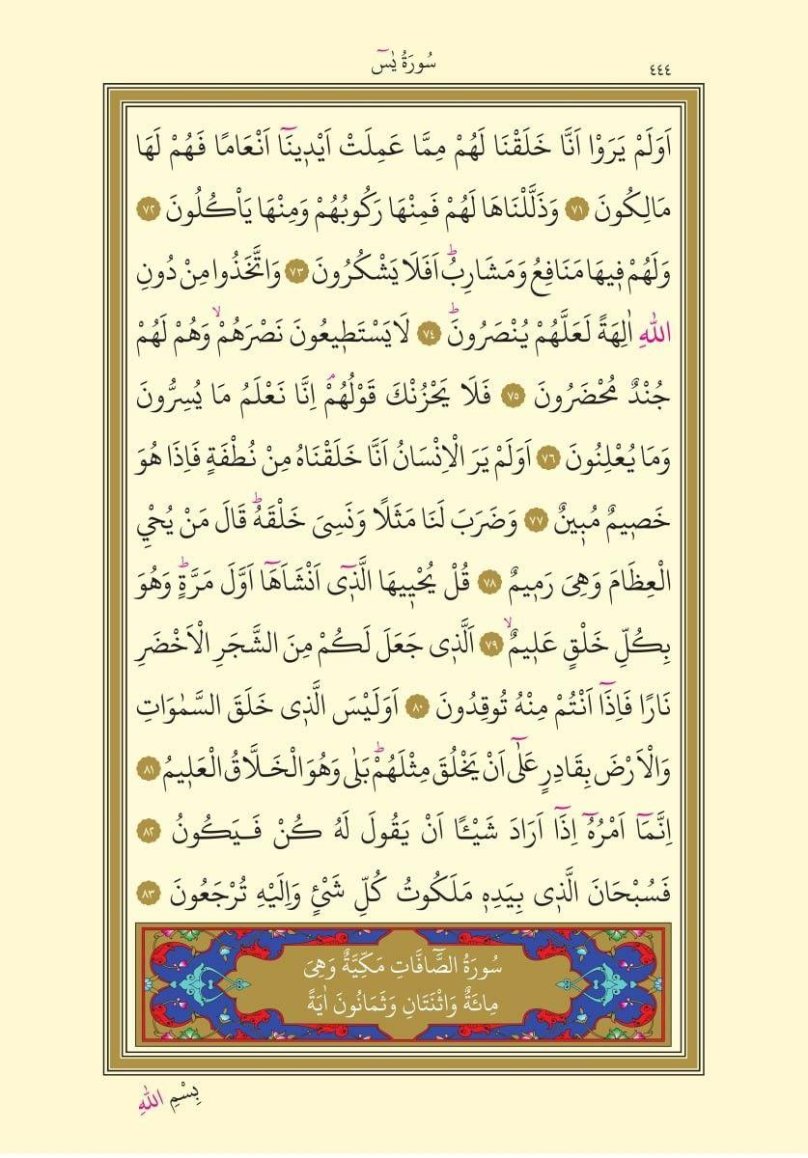 ٤٤٤
سُورَةُ يٰسٓ
اَوَلَمْ يَرَوْا اَنَّا خَلَقْنَا لَهُمْ مِمَّا عَمِلَتْ اَيْدٖينَٓا اَنْعَامًا فَهُمْ لَهَا
مَالِكُونَ ٧١ وَذَلَّلْنَاهَا لَهُمْ فَمِنْهَا رَكُوبُهُمْ وَمِنْهَا يَأْكُلُونَ ٧٢
وَلَهُمْ فٖيهَا مَنَافِعُ وَمَشَارِبُؕ اَفَلَا يَشْكُرُونَ ٧٣ وَاتَّخَذُوا مِنْ دُونِ
اللّٰهِ اٰلِهَةً لَعَلَّهُمْ يُنْصَرُونَؕ ٧٤ لَا يَسْتَطٖيعُونَ نَصْرَهُمْۙ وَهُمْ لَهُمْ
جُنْدٌ مُحْضَرُونَ ٧٥ فَلَا يَحْزُنْكَ قَوْلُهُمْۢ اِنَّا نَعْلَمُ مَا يُسِرُّونَ
وَمَا يُعْلِنُونَ ٧٦ اَوَلَمْ يَرَ الْاِنْسَانُ اَنَّا خَلَقْنَاهُ مِنْ نُطْفَةٍ فَاِذَا هُوَ
خَصٖيمٌ مُبٖينٌ ٧٧ وَضَرَبَ لَنَا مَثَلًا وَنَسِيَ خَلْقَهُؕ قَالَ مَنْ يُحْيِ
الْعِظَامَ وَهِيَ رَمٖيمٌ ٧٨ قُلْ يُحْيٖيهَا الَّذٖٓى اَنْشَاَهَٓا اَوَّلَ مَرَّةٍؕ وَهُوَ
بِكُلِّ خَلْقٍ عَلٖيمٌۙ ٧٩ اَلَّذٖى جَعَلَ لَكُمْ مِنَ الشَّجَرِ الْاَخْضَرِ
نَارًا فَاِذَٓا اَنْتُمْ مِنْهُ تُوقِدُونَ ٨٠ اَوَلَيْسَ الَّذٖى خَلَقَ السَّمٰوَاتِ
وَالْاَرْضَ بِقَادِرٍ عَلٰٓى اَنْ يَخْلُقَ مِثْلَهُمْؕ بَلٰى وَهُوَ الْخَلَّاقُ الْعَلٖيمُ ٨١
اِنَّمَٓا اَمْرُهُٓ اِذَٓا اَرَادَ شَيْـًٔا اَنْ يَقُولَ لَهُ كُنْ فَيَكُونُ ٨٢
فَسُبْحَانَ الَّذٖى بِيَدِهٖ مَلَكُوتُ كُلِّ شَيْئٍ وَاِلَيْهِ تُرْجَعُونَ ٨٣
سُورَةُ الصَّٓافَّاتِ مَكِّيَّةٌ وَهِيَ
مِائَةٌ وَاثْنَتَانِ وَثَمَانُونَ اٰيَةً
بِسْمِ اللّٰهِ